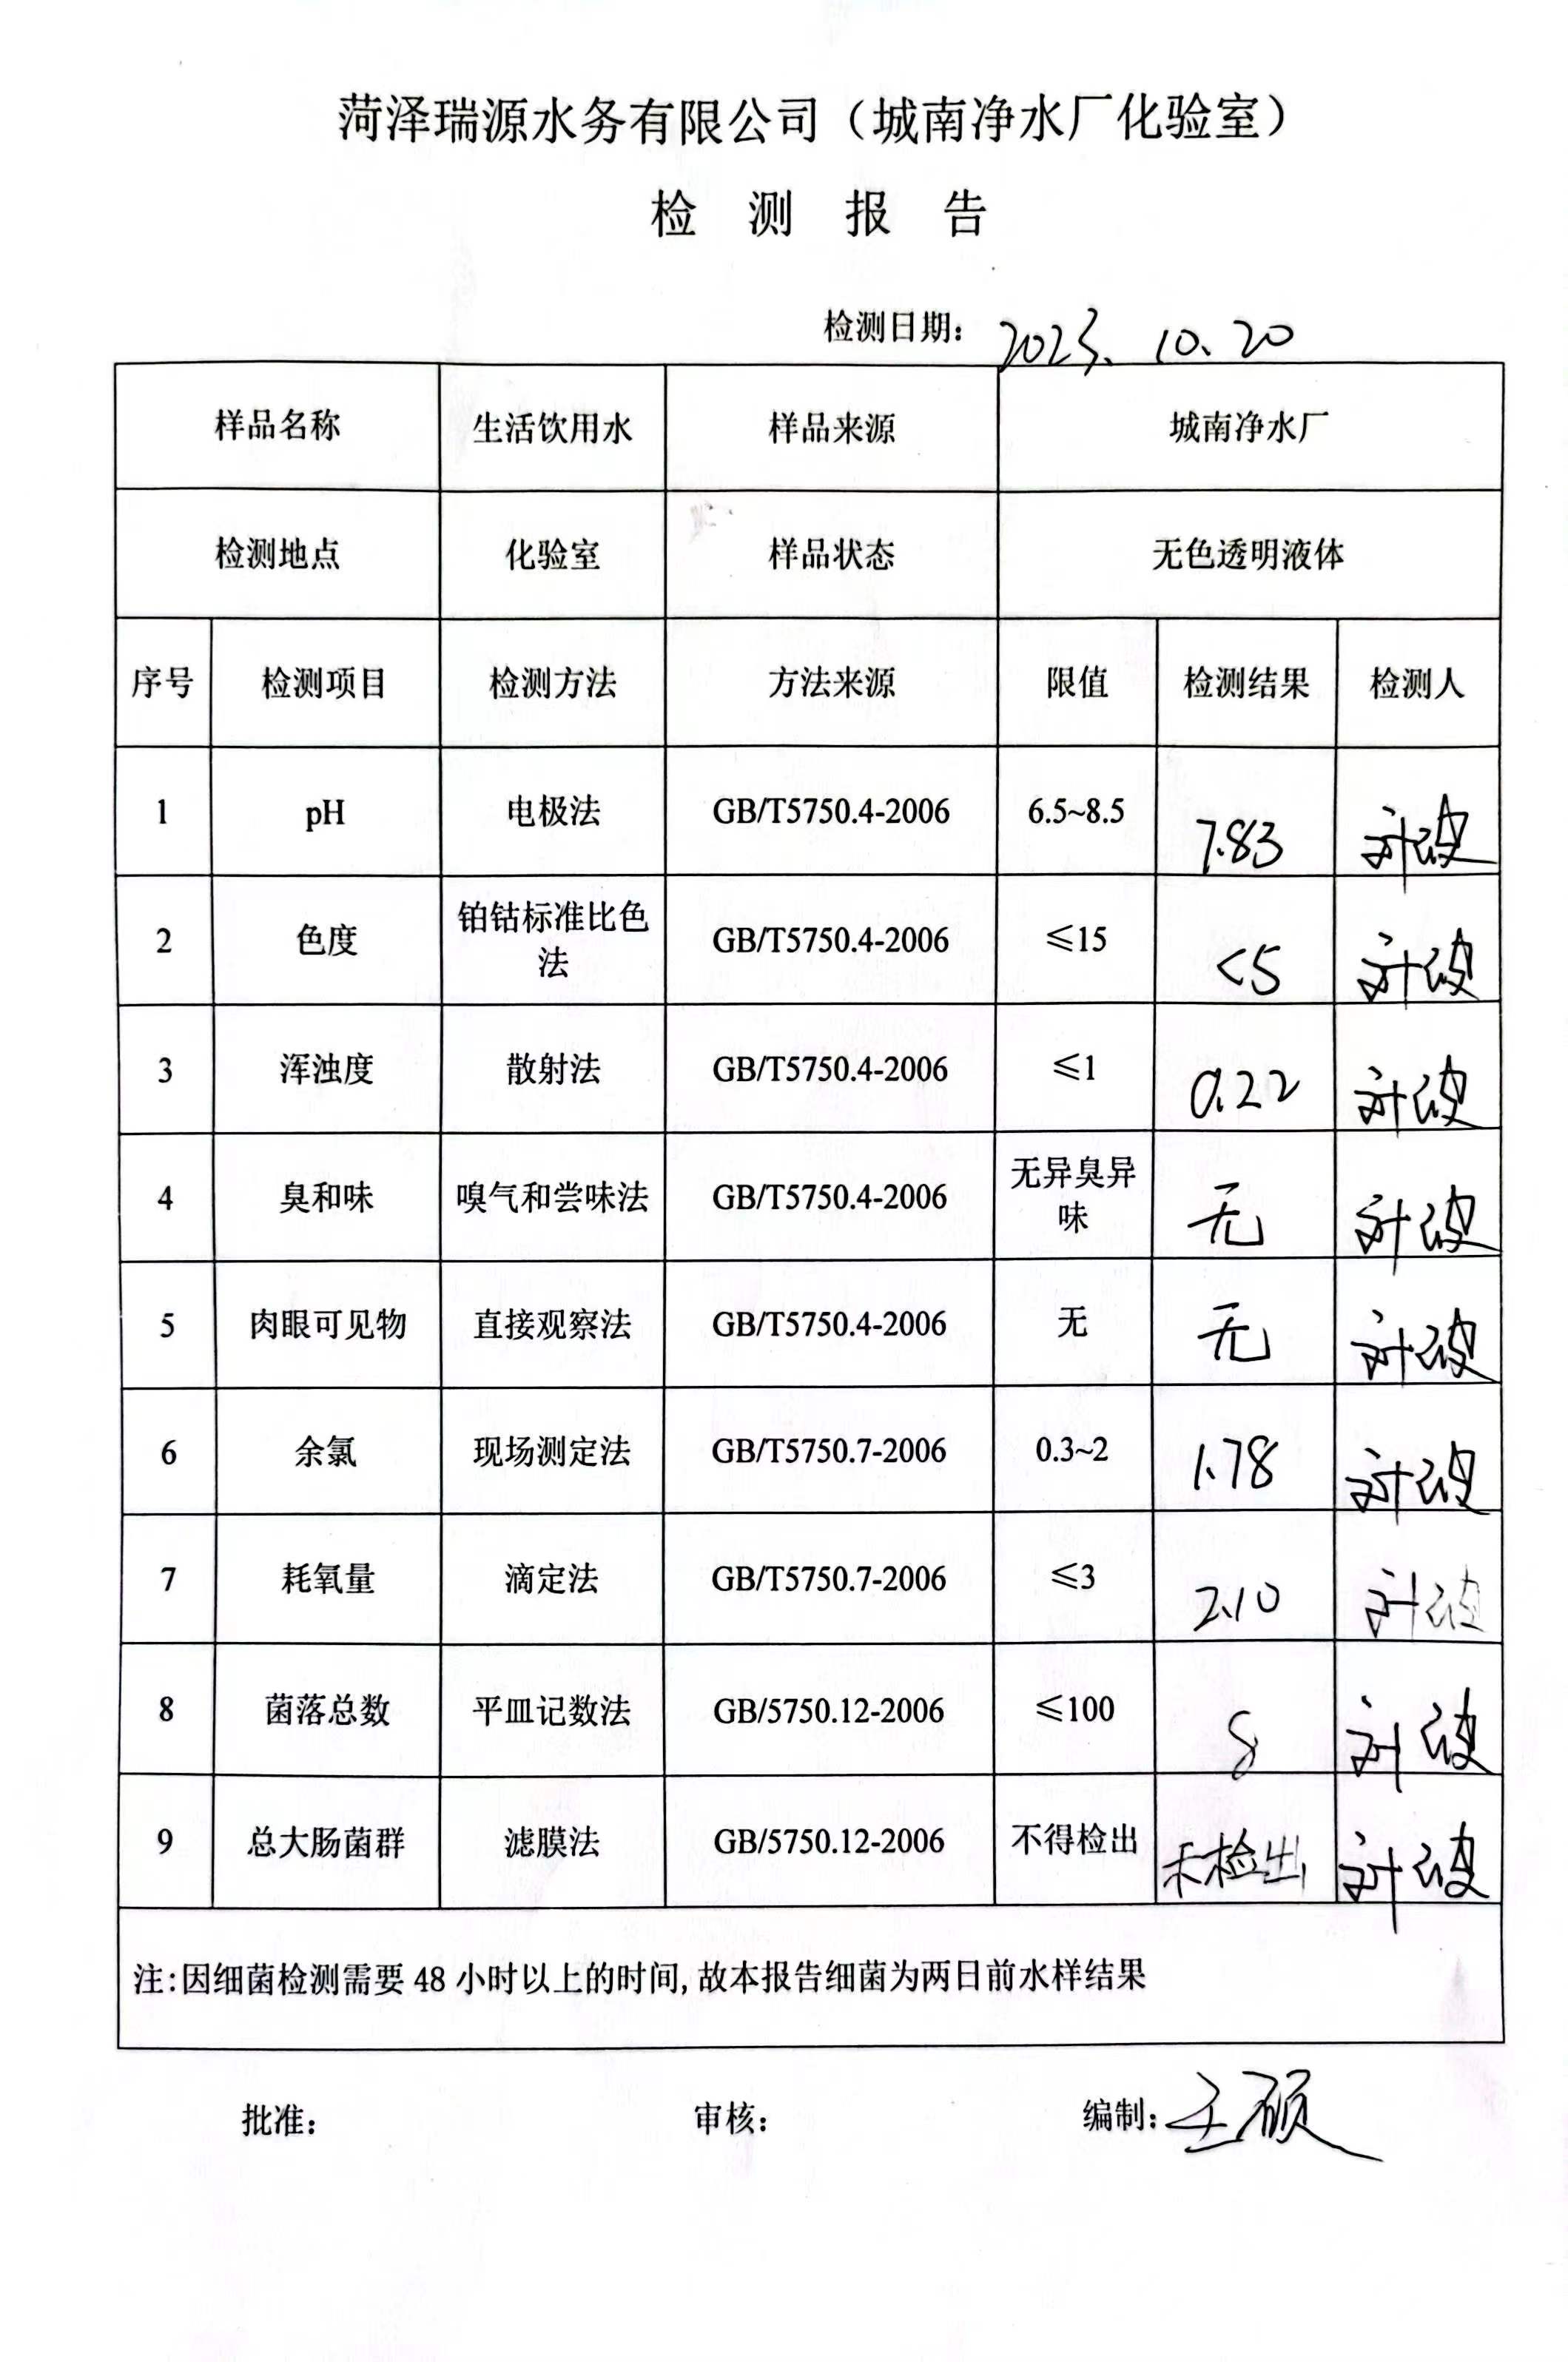 菏泽瑞源水务有限公司（城南净水厂化验室）
检 测 报 告
检测日期： 2023. 10. 20
样品名称 生活饮用水 样品来源 城南净水厂
检测地点 化验室 样品状态 无色透明液体
序号 检测项目 检测方法 方法来源 限值 检测结果 检测人
1 pH 电极法 GB/T5750.4-2006 6.5~8.5 7.83 刘波
2 色度 铂钴标准比色法 GB/T5750.4-2006 ≤15 <5 刘波
3 浑浊度 散射法 GB/T5750.4-2006 ≤1 0.22 刘波
4 臭和味 嗅气和尝味法 GB/T5750.4-2006 无异臭异味 无 刘波
5 肉眼可见物 直接观察法 GB/T5750.4-2006 无 无 刘波
6 余氯 现场测定法 GB/T5750.7-2006 0.3~2 1.78 刘波
7 耗氧量 滴定法 GB/T5750.7-2006 ≤3 2.10 刘波
8 菌落总数 平皿记数法 GB/5750.12-2006 ≤100 8 刘波
9 总大肠菌群 滤膜法 GB/5750.12-2006 不得检出 未检出 刘波
注:因细菌检测需要 48 小时以上的时间,故本报告细菌为两日前水样结果
批准： 审核： 编制: 王硕